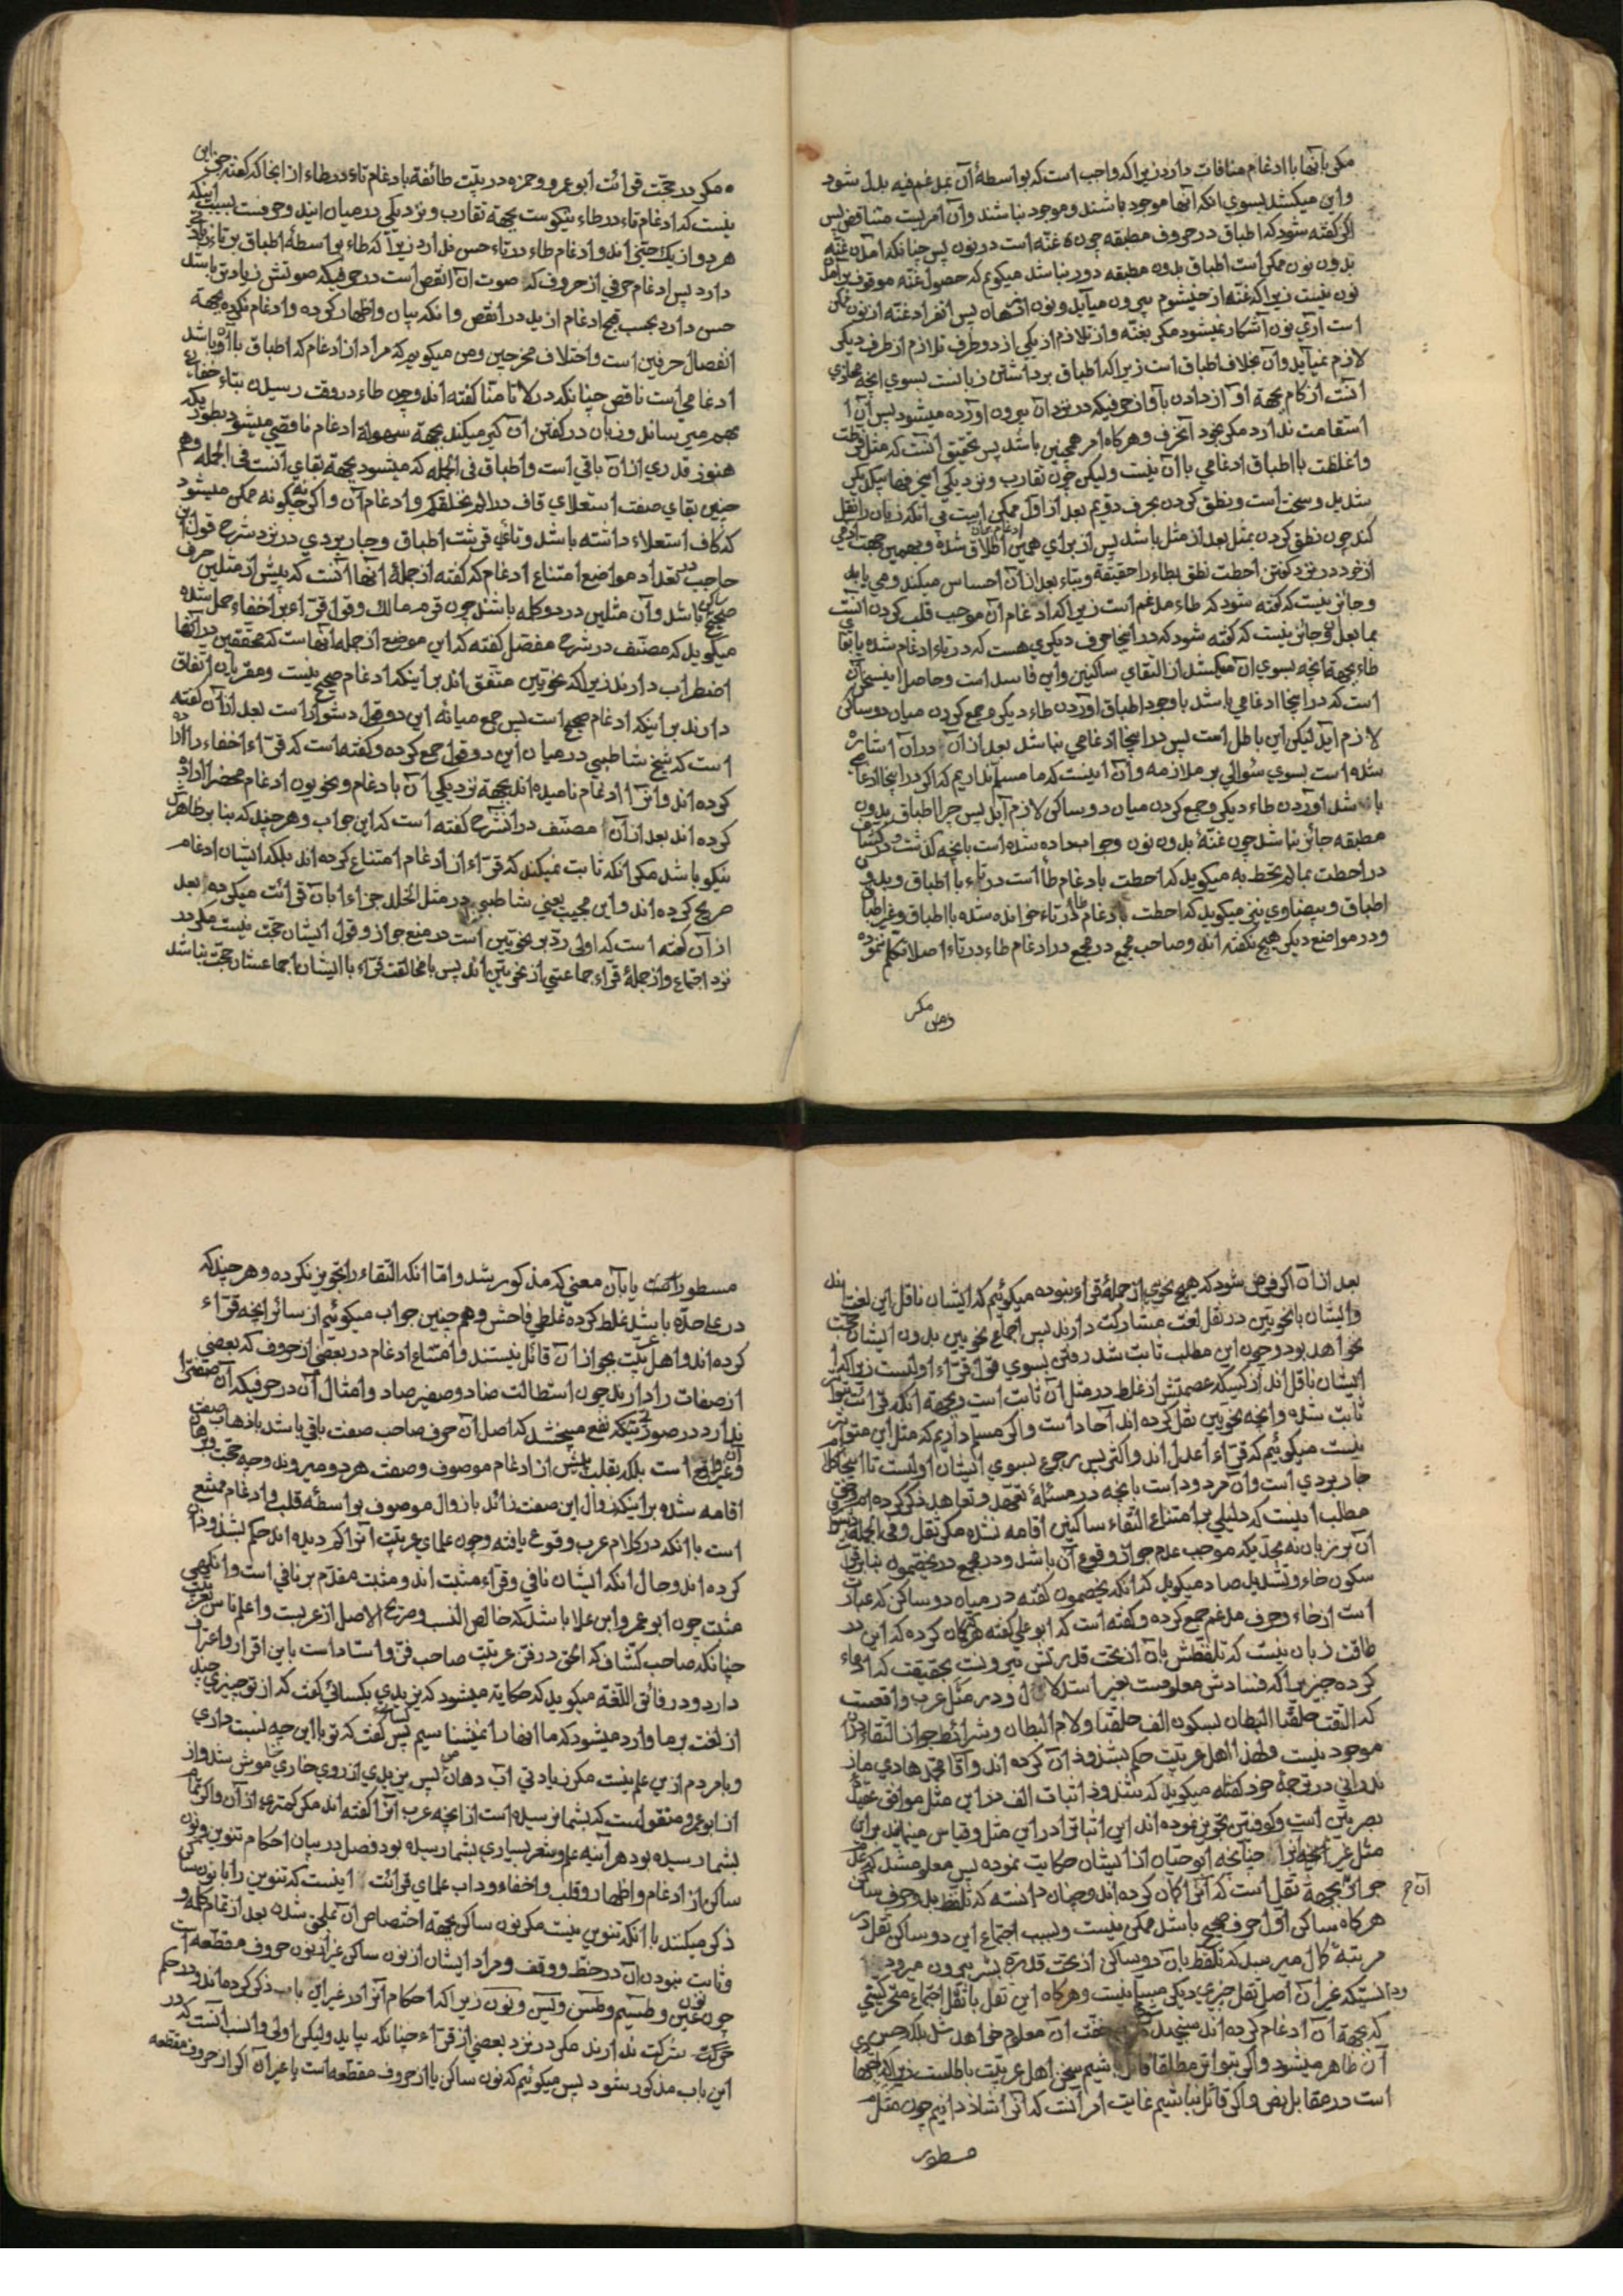 مکر بآنها با ادغام منافات دارد زیرا که واجب است که بواسطهٔ آن بمدغم فیه بدل شود
واین میکشد بسوی انکه آنها موجود باشند و موجود نباشند وآن امریست متناقض پس
اکر کفته شود که اطباق در حروف مطبقه چون غنّه است در نون پس چنانکه آمدن غنّه
بدون نون ممکن است اطباق بدون مطبقه دور نباشد میکویم که حصول غنّه موقوف بر آمدن
نون نیست زیرا که غنّه از خیشوم بیرون میآید ونون از دهان پس انفراد غنّه از نون ممکن
است آری نون آشکار نمیشود مکر بغنّه واز تلازم از یکی از دو طرف تلازم از طرف دیکر
لازم نمیآید وآن بخلاف اطباق است زیرا که اطباق برداشتن زبانست بسوی آنچه محاذی
آنست از کام بجهة آواز دادن بآواز حرفیکه در نزد آن بیرون آورده میشود پس آن را
استقامت ندارد مکر بخود آنحرف وهرکاه امر همچنین باشد پس تحقیق آنست که مثل فرطت
واغلظت با اطباق ادغامی با آن نیست ولیکن چون تقارب ونزدیکی این حرفها بیکدیکر
شدید وسخت است ونطق کردن بحرف دویم بعد از اول ممکن است بی آنکه زبان را نقل
کند چون نطق کردن بمثل بعد از مثل باشد پس از برای همین ادغام بر آن اطلاق شده وبهمین جهت آدمی
از خود در نزد کفتن احطت نطق بطاء را حقیقة وبتاء بعد از آن احساس میکند ومی یابد
وجائز نیست که کفته شود که طاء مدغم است زیرا که ادغام آن موجب قلب کردن آنست
بما بعد آن وجائز نیست که کفته شود که در اینجا حرف دیکری هست که در تاء ادغام شده با بقای
طاء بجهة آنچه بسوی آن میکشد از التقای ساکنین واین فاسد است وحاصل این سخن آن
است که در اینجا ادغامی باشد با وجود اطباق آوردن طاء دیکر وجمع کردن میان دو ساکن
لازم آید لیکن این باطل است پس در اینجا ادغامی نباشد بعد از آن در آن اشاره
شده است بسوی سؤالی بر ملازمه وآن اینست که ما مسلم نداریم که اکر در اینجا ادغامی
باشد آوردن طاء دیکر وجمع کردن میان دو ساکن لازم آید پس چرا اطباق بدون
مطبقه جائز نباشد چون غنّهٔ بدون نون وجواب داده شده است بآنچه کذشت ودر کشاف
در احطت بما لم تحط به میکوید که احطت بادغام طا است در تاء با اطباق وبدون
اطباق وبیضاوی نیز میکوید که احطت بادغام طا در تاء خوانده شده با اطباق وغیر اطباق
ودر مواضع دیکر هیچ نکفته اند وصاحب مجمع در مجمع در ادغام طاء در تاء اصلا تکلم ننموده
مکر در حجّت قرائت ابو عمرو وحمزه در بیّت طائفة بادغام تاء در طاء از آنجا که کفته جز این
نیست که ادغام تاء در طاء نیکوست بجهة تقارب ونزدیکی در میان ایند وحرفست بسبب اینکه
هر دو از یک حیّز اند وادغام طاء در تاء حسن ندارد زیرا که طاء بواسطهٔ اطباق بر تاء زیادتی
دارد پس ادغام حرفی از حروف که صوت آن انقص است در حرفیکه صوتش زیادتر باشد
حسن دارد بحسب قبح ادغام ازید در انقص وانکه بیان واظهار کرده وادغام نکرده بجهة
انفصال حرفین است واختلاف مخرجین ومن میکویم که مراد از ادغام که اطباق با آن باشد
ادغامی است ناقص چنانکه در لا تامنّا کفته اند وچون طاء در وقت رسیدن بتاء خفاء
بهم میرساند وزبان در کفتن آن کیر میکند بجهة سهولة ادغام ناقصی میشود بطوریکه
هنوز قدری از آن باقی است واطباق فی الجمله که میشود بجهة بقای آنست فی الجمله وهم
چنین بقای صفت استعلای قاف در الم نخلقکم وادغام آن واکرنه چکونه ممکن میشود
که کاف استعلاء داشته باشد وتای قرشت اطباق وجاربردی در نزد شرح قول ابن
حاجب در تعداد مواضع امتناع ادغام که کفته از جملهٔ آنها آنست که پیش از مثلین حرف
صحیح ساکن باشد وآن مثلین در دو کلمه باشند چون قرم مالک وقول قرّاء بر اخفاء حمل شده
میکوید که مصنّف در شرح مفصّل کفته که این موضع از جمله آنهاست که محققین در آنها
اضطراب دارند زیرا که نحویّین متّفق اند بر اینکه ادغام صحیح نیست ومقریان اتفاق
دارند بر اینکه ادغام صحیح است پس جمع میانه این دو قول دشوار است بعد از آن کفته
است که شیخ شاطبی در میان این دو قول جمع کرده وکفته است که قرّاء اخفاء را اراده
کرده اند وآنرا ادغام نامیده اند بجهة نزدیکی آن بادغام ونحویون ادغام محض را اراده
کرده اند بعد از آن مصنّف در آنشرح کفته است که این جواب وهر چند که بنا بر ظاهرش
نیکو باشد مکر انکه ثابت نمیکند که قرّاء از ادغام امتناع کرده اند بلکه ایشان ادغام
صریح کرده اند واین مجیب یعنی شاطبی در مثل الخلد جزاء با آن قرائت میکرده بعد
از آن کفته است که اولی ردّ بر نحویّین است در منع جواز وقول ایشان حجّت نیست مکر در
نزد اجماع واز جملهٔ قرّاء جماعتی از نحویّین اند پس با مخالفت قرّاء با ایشان اجماعشان حجّت نباشد
ومن مکر
بعد از آن اکر فرض شود که هیچ نحوی از جملهٔ قرّاء نبوده میکوئیم که ایشان ناقل این لغت اند
وایشان با نحویّین در نقل لغت مشارکت دارند پس اجماع نحویین بدون ایشان حجّت
نخواهد بود وچون این مطلب ثابت شد رفتن بسوی قول قرّاء اولیست زیرا که
ایشان ناقل اند از کسیکه عصمتش از غلط در مثل آن ثابت است وبجهة انکه قرائت بتواتر
ثابت شده وآنچه نحویین نقل کرده اند آحاد است واکر مسلم داریم که مثل این متواتر
نیست میکوئیم که قرّاء اعدل اند واکثر پس رجوع بسوی ایشان اولیست تا اینجا کلام
جاربردی است وآن مردود است بآنچه در مسئلهٔ تعهّد وتعاهد ذکر کرده ام وحق
مطلب اینست که دلیلی بر امتناع التقاء ساکنین اقامه نشده مکر ثقل وفی الجمله دشواری
آن بر زبان نه بحدّیکه موجب عدم جواز وقوع آن باشد ودر مجمع در یخصّمون بنا بر قرائت
سکون خاء وتشدید صاد میکوید که انکه یخصمون کفته در میان دو ساکن که عبارت
است از خاء وحرف مدغم جمع کرده وکفته است که ابو علی کفته هرکه کمان کرده که این در
طاقت زبان نیست که تلفظش بآن از تحت قدرتش بیرونست بتحقیقت که ادعاء
کرده چیزیرا که فسادش معلومست بغیر استدلال ودر مثل عرب واقعست
که التقت حلقتا البطان بسکون الف حلقتا ولام البطان وشرائط جواز التقاء در آن
موجود نیست ولهذا اهل عربیّت حکم بشذوذ آن کرده اند وآقا محمّد هادی ماز
ندرانی در ترجمهٔ خود کفته میکوید که شذوذ اثبات الف در این مثل موافق مختار
بصریّین است وکوفیّین تجویز نموده اند این اثبات را در این مثل وقیاس مینمایند بر این
مثل غیر آنرا چنانچه ابو حیّان از ایشان حکایت نموده پس معلوم شد که عدم
جواز بجهة ثقل است که آنرا کمان کرده اند وچنان دانسته که تلفظ بدو حرف ساکن
آن م
هرکاه ساکن اوّل حرف صحیح باشد ممکن نیست وبسبب اجتماع این دو ساکن ثقل در
مرتبهٔ کمال میرسد که تلفّظ بآن دو ساکن از تحت قدرة بشر بیرون میرود
ودانستیکه غیر از آن اصل ثقل چیزی دیکر میسّر نیست وهرکاه این ثقل با ثقل اجتماع متحرکینی
که بجهة آن ادغام کرده اند سنجیده شود خفّت آن معلوم خواهد شد بلکه حسن
آن ظاهر میشود واکر بتواتر مطلقا قائل باشیم سخن اهل عربیّت باطلست زیرا که اجتهاد
است در مقابل نص واکر قائل نباشیم غایت امر آنست که آنرا شاذ دانیم چون مثل
مسطور
مسطور است یا بآن معنی که مذکور شد وامّا انکه التقاء را تجویز نکرده وهر چند که
در علی حدّه باشد غلط کرده غلطی فاحش وهم چنین جواب میکوئیم از سائر آنچه قرّاء
کرده اند واهل عربیّت بجواز آن قائل نیستند وامتناع ادغام در بعضی از حروف که بعضی
از صفات را دارند چون استطالت ضاد وصفیر صاد وامثال آن در حرفیکه آن صفت را
ندارد در صورتیکه نفع میبخشد که اصل آن حرف صاحب صفت باقی باشد با ذهاب صفت
آن وغیر واقع است بلکه بقلب پیش از ادغام موصوف وصفت هر دو میروند وجه حجّت وبرهان
اقامه شده بر اینکه زوال این صفت زائد با زوال موصوف بواسطهٔ قلب وادغام ممتنع
است با انکه در کلام عرب وقوع یافته وچون علمای عربیّت آنرا کم دیده اند حکم بشذوذ آن
کرده اند وحال انکه ایشان نافی وقرّاء مثبت اند ومثبت مقدّم بر نافی است وانکهی
مثبت چون ابو عمرو ابن علا باشد که خالص النسب وصریح الاصل از عربست واعلم ناس بعربیّت
چنانکه صاحب کشّاف که الحق در فنّ عربیّت صاحب فنّ واستاد است باین اقرار واعتراف
دارد ودر فائق اللغه میکوید که حکایة میشود که یزیدی بکسائی کفت که از تو چیزی چند
از لغت بر ما وارد میشود که ما آنها را نمیشناسیم پس کسائی کفت که تو با این چه نسبت داری
وبا مردم ازین علم نیست مکر زیادتی آب دهان من پس یزیدی از روی خواری خاموش شد واز
از ابو عمرو منقولست که بشما نرسیده است از آنچه عرب آنرا کفته اند مکر کمتری از آن واکر تمام
بشما رسیده بود هر آینه علم وشعر بسیاری بشما رسیده بود فصل در بیان احکام تنوین ونون
ساکن از ادغام واظهار وقلب واخفاء وداب علمای قرائت اینست که تنوین را با نون ساکن
ذکر میکنند با انکه تنوین نیست مکر نون ساکن بجهة اختصاص آن بملحق شده بعد از تمام کلمه و
وثابت نبودن آن در خط ووقف ومراد ایشان از نون ساکن غیر از نون حروف مقطّعه است
چون نون عین وطسم وطس ویس ونون زیرا که احکام آنرا در غیر این باب ذکر کرده اند ودر حکم
حرکت شرکت ندارند مکر در نزد بعضی از قرّاء چنانکه بیاید ولیکن اولی وانسب آنست که در
این باب مذکور شود پس میکوئیم که نون ساکن یا از حروف مقطّعه است یا غیر آن اکر از حروف مقطعه